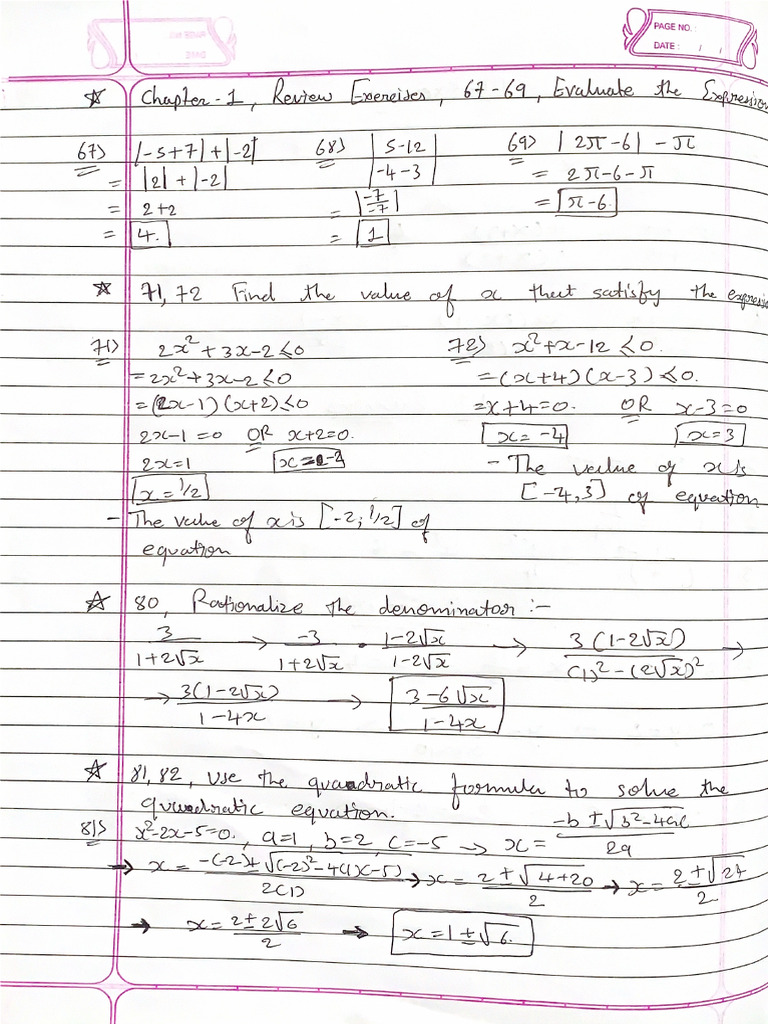 PAGE NO. :
DATE : / /
☆ Chapter-1, Review Exercises, 67-69, Evaluate the Expression
67) |-5+7|+|-2| 68) |5-12 / -4-3| 69) |2π-6| - π
= |2|+|-2| = 2π-6-π
= 2+2 = |-7/-7| = π-6.
= 4. = 1
☆ 71, 72 Find the value of x that satisfy the
71) 2x²+3x-2≤0 72) x²+x-12≤0.
=2x²+3x-2≤0 =(x+4)(x-3)≤0.
=(2x-1)(x+2)≤0 =x+4=0. OR x-3=0
2x-1=0 OR x+2=0. x=-4 x=3
2x=1 x=-2 - The value of x is
x=1/2 [-4,3] of equation
- The value of x is [-2, 1/2] of
equation
☆ 80, Rationalize the denominator :-
3/(1+2√x) → -3/(1+2√x) • (1-2√x)/(1-2√x) → 3(1-2√x)/((1)²-(2√x)²) →
→ 3(1-2√x)/(1-4x) → (3-6√x)/(1-4x)
☆ 81, 82, use the quadratic formula to solve the
quadratic equation.
81) x²-2x-5=0, a=1, b=2, c=-5 → x= (-b±√(b²-4ac))/2a
→ x= (-(-2)±√((-2)²-4(1)(-5)))/2(1) → x= (2±√(4+20))/2 → x= (2±√24)/2
→ x= (2±2√6)/2 → x=1±√6.